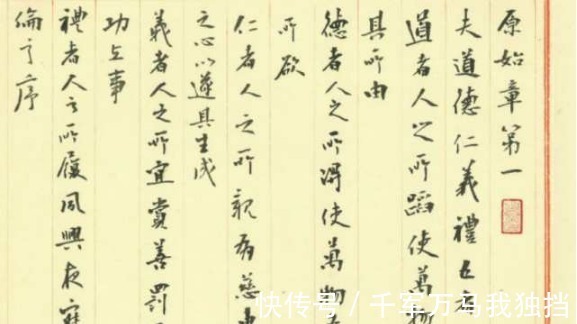 原始章第一
夫道德仁義禮五者
道者人之所蹈使萬物
其所由
德者人之所得使萬物
所欲
仁者人之所親有慈惠
之心以遂其生成
義者人之所宜賞善罰
功立事
禮者人之所履夙興夜寐
倫之序
快传号/千军万马我独挡